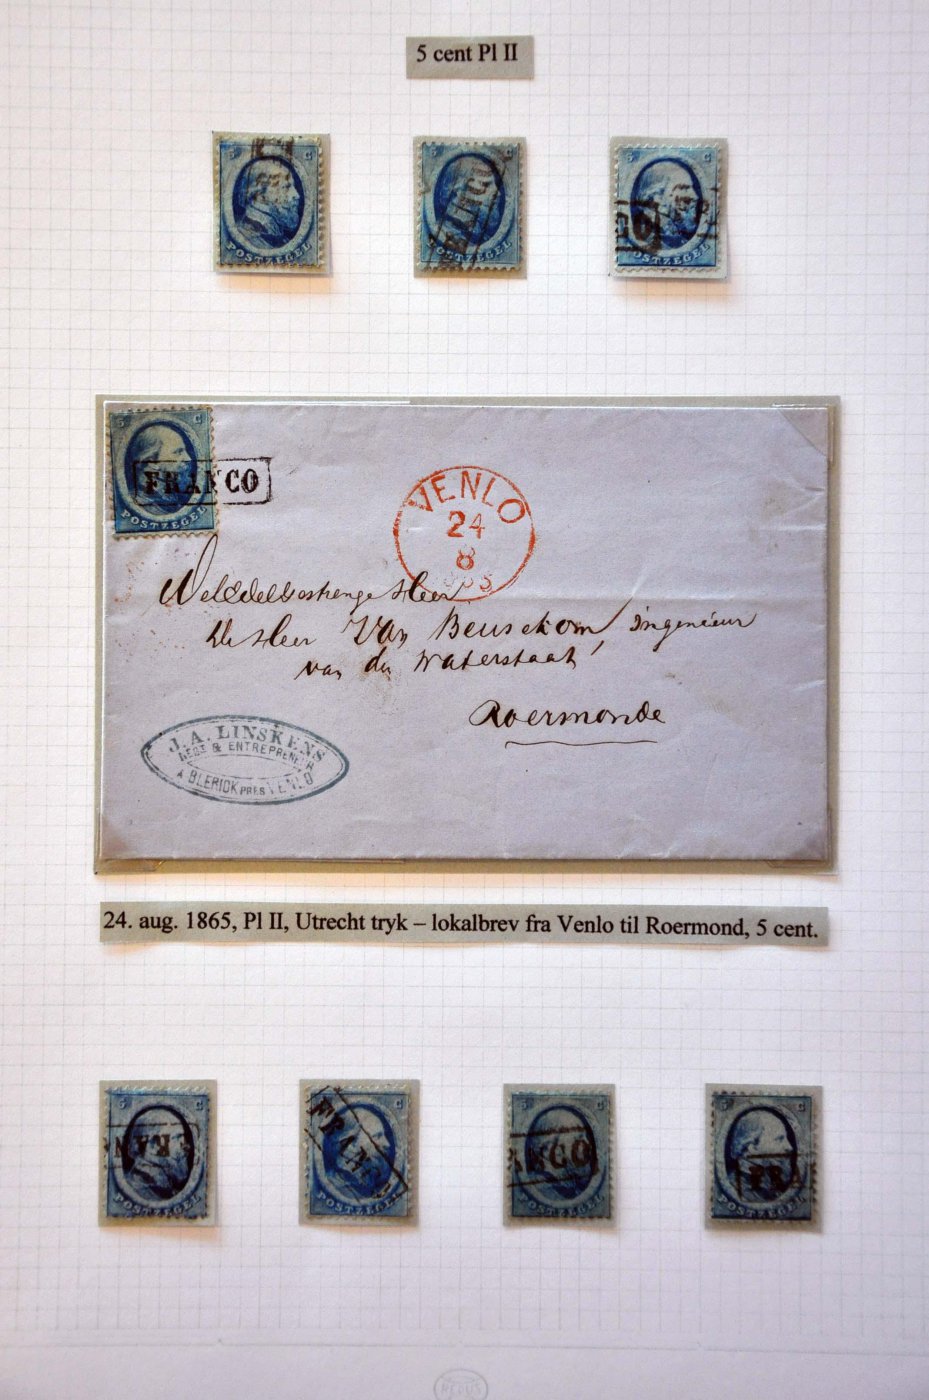 5 cent Pl II
5 C
POSTZEGEL
5 C
FRANCO
POSTZEGEL
5 C
CO
POSTZEGEL
5 C
FRANCO
POSTZEGEL
VENLO
24
8
Heer
De Heer Van Beusekom, ingenieur
van den Waterstaat,
Roermonde
J.A. LINSKENS
& ENTREPRENEUR
A BLERICK PRES VENLO
24. aug. 1865, Pl II, Utrecht tryk – lokalbrev fra Venlo til Roermond, 5 cent.
5 C
FRAN
POSTZEGEL
5 C
FRANC
POSTZEGEL
5 C
ANCO
POSTZEGEL
5 C
FRA
POSTZEGEL